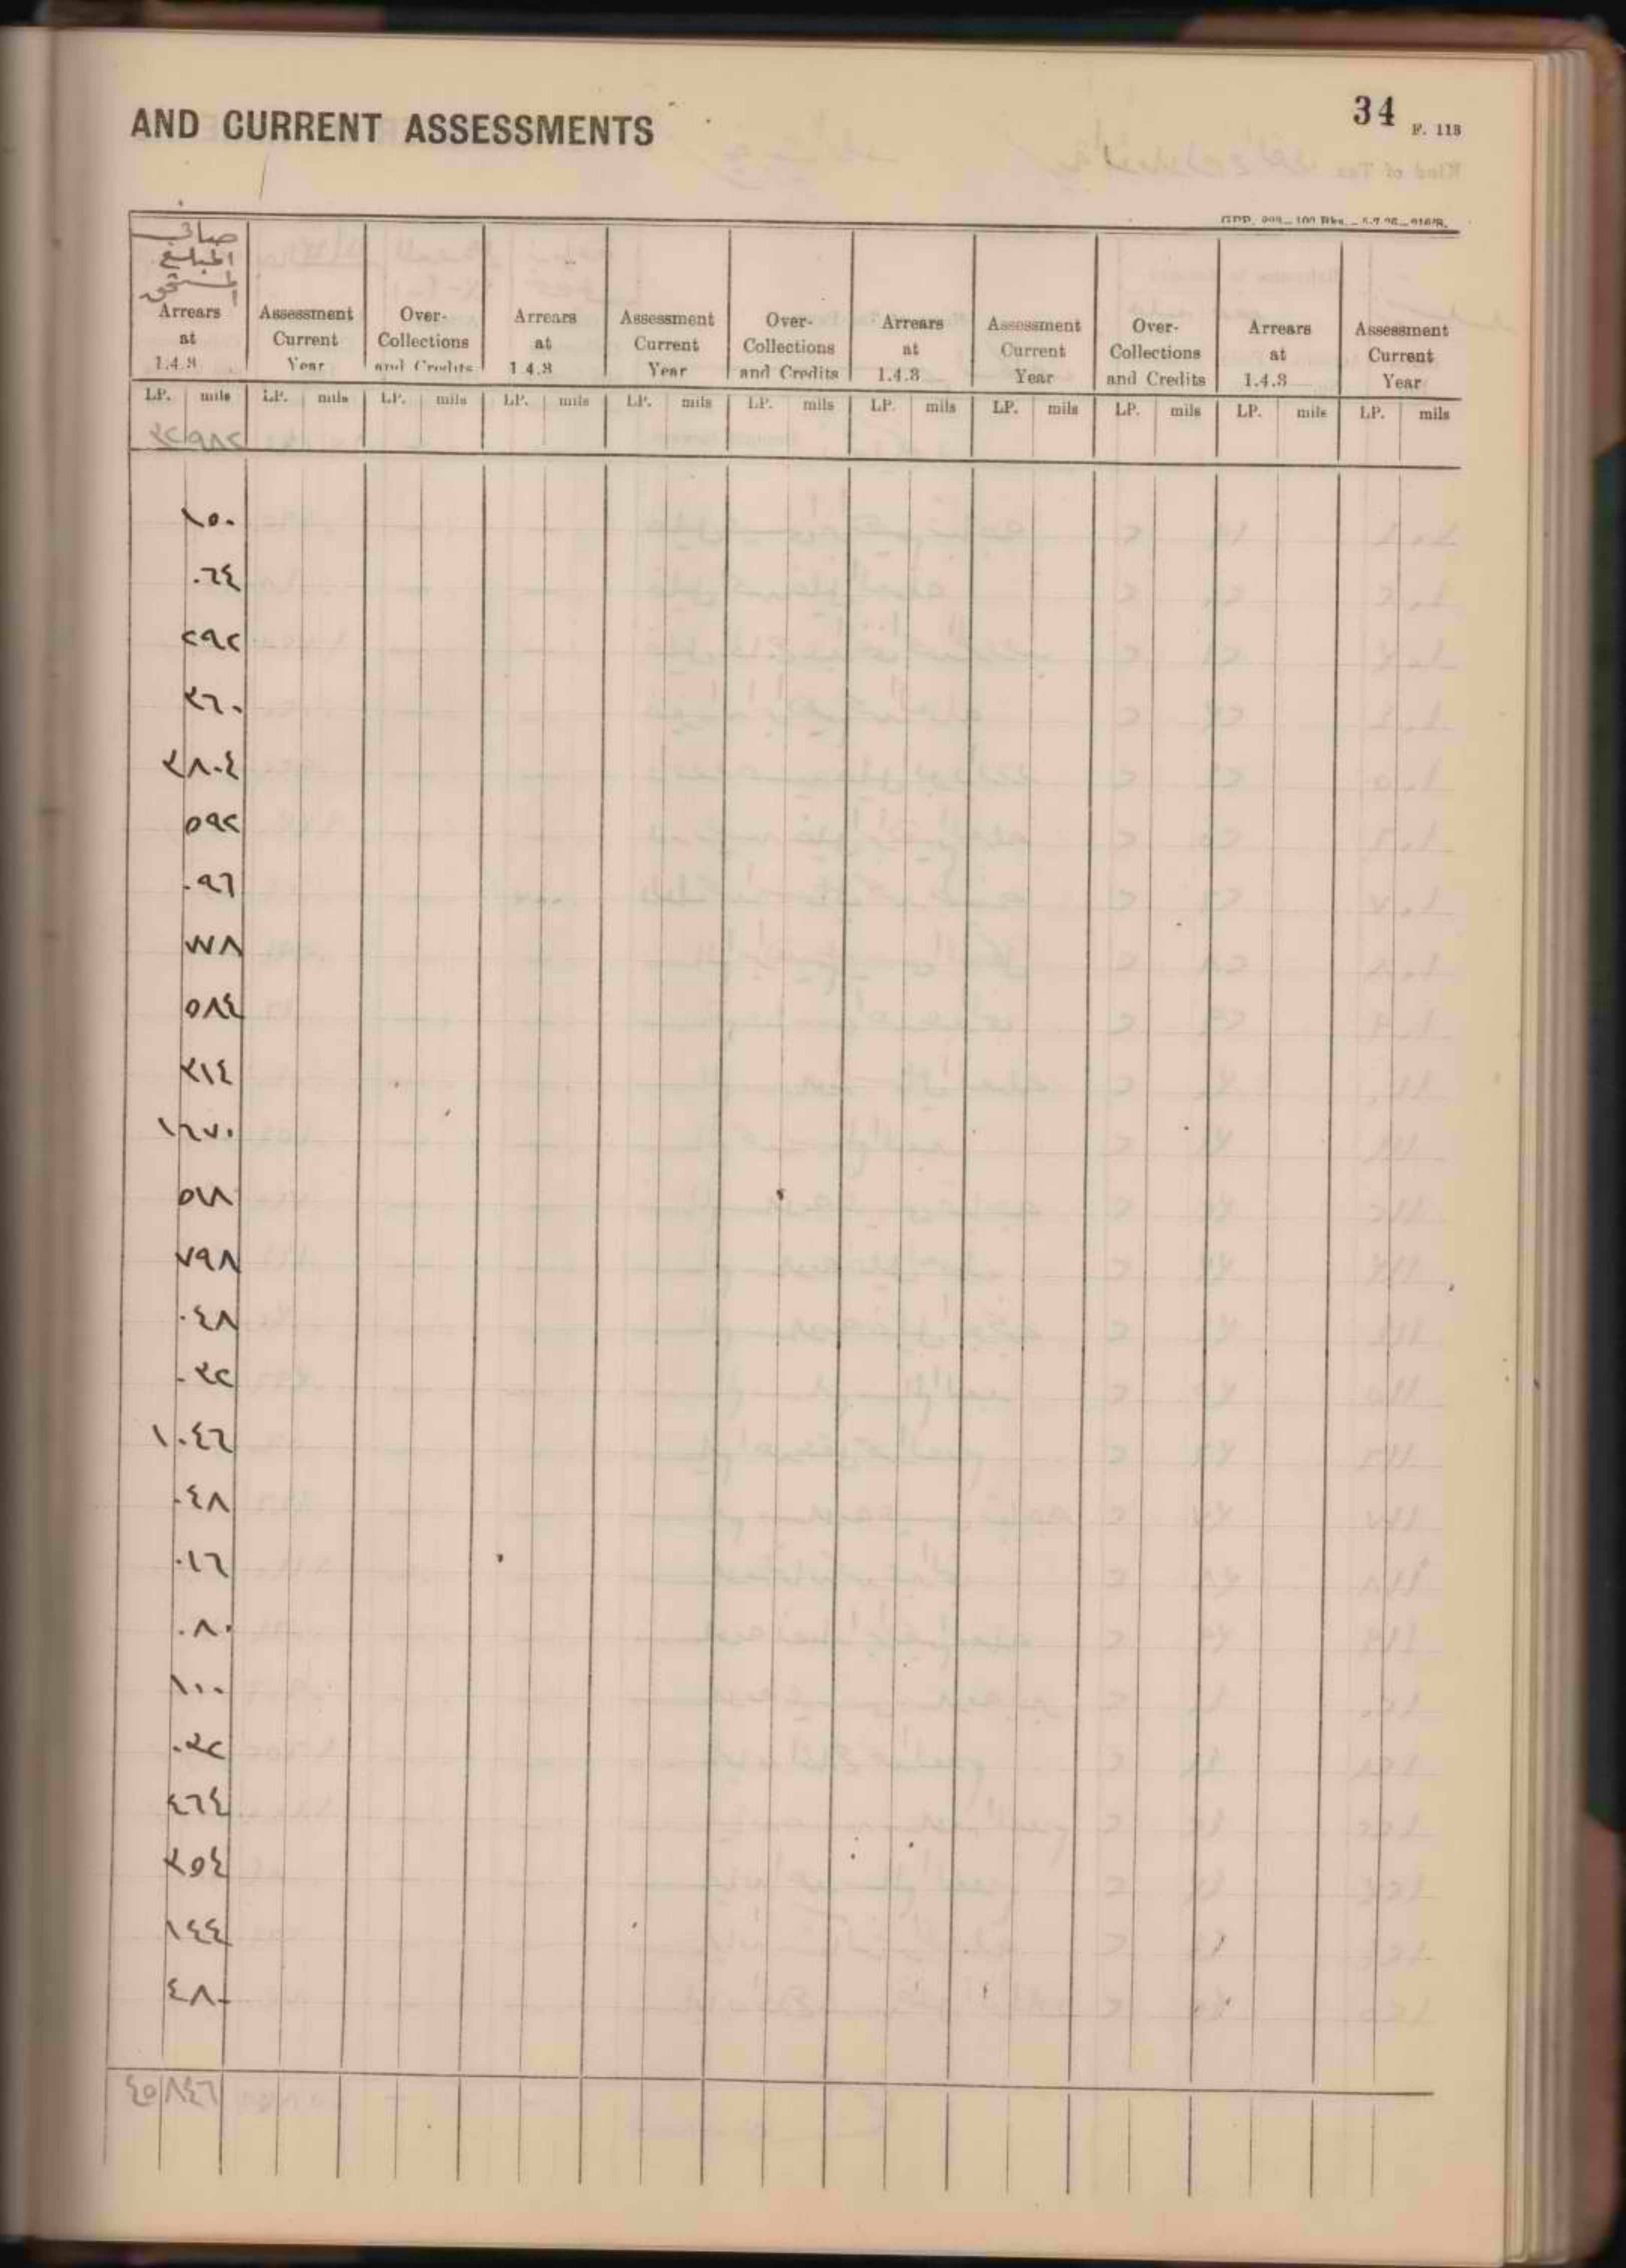 AND CURRENT ASSESSMENTS
34 F. 113
صافي
المبلغ
المستحق
Arrears at 1.4.3
Assessment Current Year
Over-Collections and Credits
Arrears at 1.4.3
Assessment Current Year
Over-Collections and Credits
Arrears at 1.4.3
Assessment Current Year
Over-Collections and Credits
Arrears at 1.4.3
Assessment Current Year
LP. mils LP. mils LP. mils LP. mils LP. mils LP. mils LP. mils LP. mils LP. mils LP. mils LP. mils
٣٢ ٩٨٢
١٥٠
٠٦٤
٢٩٢
٣٦٠
٣ ٨٠٤
٥٩٢
٠٩٦
٧٧٨
٥٨٤
٣١٤
١ ٦٧٠
٥١٨
٧٩٨
٠٤٨
٠٣٢
١ ٠٤٦
٠٤٨
٠١٦
٠٨٠
١٠٠
٠٣٢
٤٦٤
٣٥٤
١٤٤
٤٨٠
٤٥ ٨٤٦